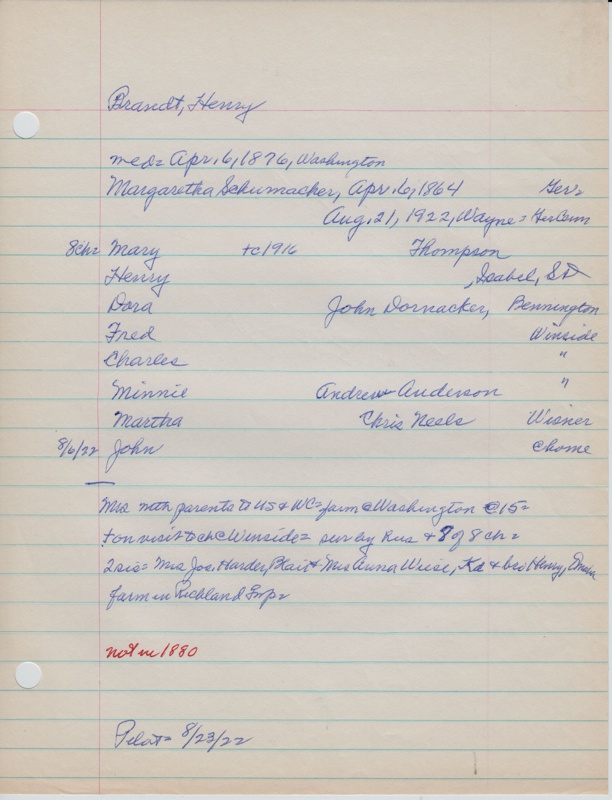 Brandt, Henry
med= Apr. 6, 1876, Washington
Margaretha Schumacker, Apr. 6, 1864 Ger=
Aug. 21, 1922, Wayne = GerCem
8chr Mary +c1916 Thompson
Henry , Isabel, SD
Dora John Dornacker, Bennington
Fred Winside
Charles "
Minnie Andrew Anderson "
Martha Chris Neels Wisner
8/6/22 John @home
Mrs with parents to US & WC= farm @ Washington @ 15=
+ on visit to ch @ Winside = sur by hus & 7 of 8 ch=
2 sis= Mrs Jos. Harder, Blair & Mrs Anna Wiese, Kd & bro Henry,
farm in Richland Twp=
not in 1880
Pilot= 8/23/22